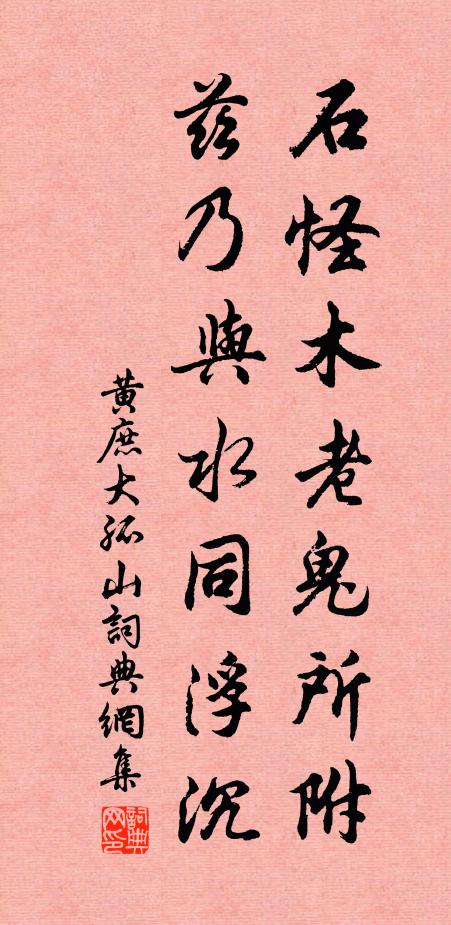 石怪木老鬼所附
茲乃與水同浮沉
黃庶大孤山詞典網集
詞典网印